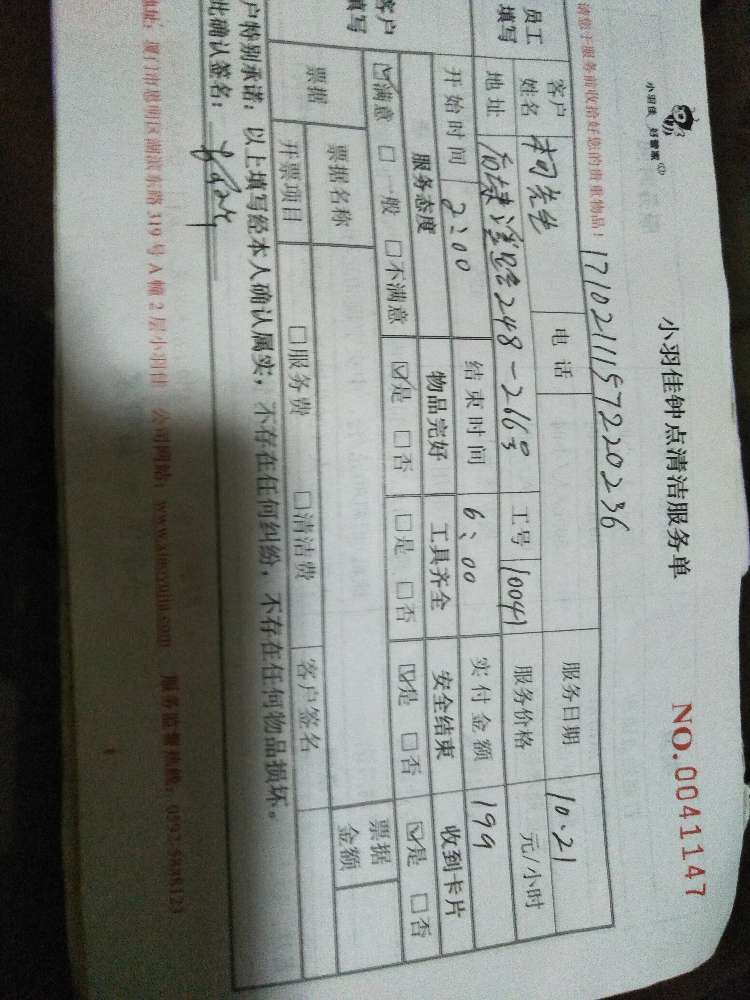 小羽佳 好管家
小羽佳钟点清洁服务单
NO.0041147
请您于服务前收拾好您的贵重物品!
1710211157220236
员工填写
客户姓名 柯先生 电话 服务日期 10.21
地址 248-2163 工号 10041 服务价格 元/小时
开始时间 2:00 结束时间 6:00 实付金额 199
客户填写
服务态度 物品完好 工具齐全 安全结束 收到卡片
☑满意 □一般 □不满意 ☑是 □否 □是 □否 ☑是 □否 ☑是 □否
票据 票据名称 票据金额
开票项目 □服务费 □清洁费 客户签名
户特别承诺:以上填写经本人确认属实,不存在任何纠纷,不存在任何物品损坏。
此确认签名:
地址:厦门市思明区湖滨东路319号A幢2层小羽佳 公司网站:www.xiaoyujia.com 服务监督热线: